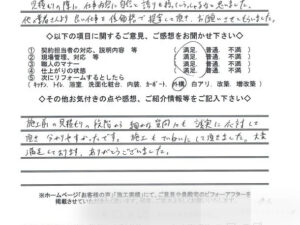 見積りの際に仕事内容に自信と誇りを持っていらっしゃると思いました。
他業者さんより良い仕事を低価格で提案して頂き、お願いさせてもらいました。
◇以下の項目に関するご意見、ご感想をお聞かせ下さい◇
① 契約担当者の対応、説明内容 等 ( 満足 普通 不満 )
② 現場管理、対応 等 ( 満足 普通 不満 )
③ 職人のマナー ( 満足 普通 不満 )
④ 仕上がりの状態 ( 満足 普通 不満 )
⑤ 次にリフォームするとしたら
(キッチン、トイレ、浴室、洗面化粧台、内装、カーポート、外構、白アリ、改築、増改築)
◇その他お気付きの点や感想、ご紹介情報等をご記入下さい◇
施工前の見積りの段階から細かな質問にも誠実に応対して
頂き分かりやすかったです。施工もていねいにして頂きました。大変
満足しております。ありがとうございました。
※ホームページ「お客様の声」「施工実績」にて、ご意見や貴殿宅のビフォーアフターを
掲載させていただきたいと思います。